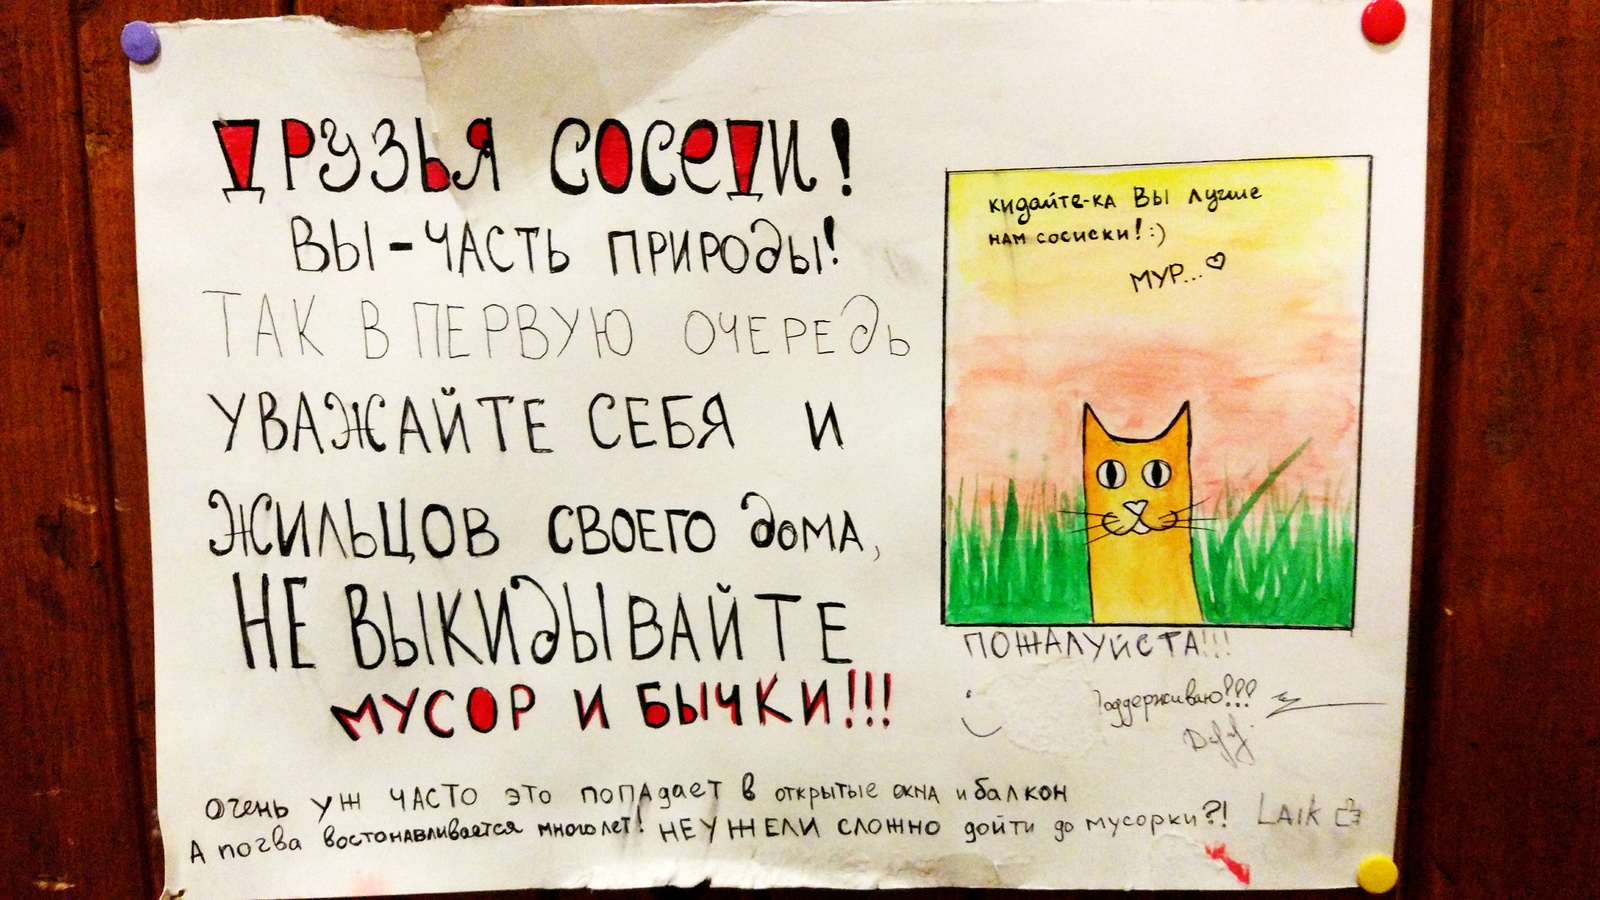 ДРУЗЬЯ СОСЕДИ!
ВЫ - ЧАСТЬ ПРИРОДЫ!
ТАК В ПЕРВУЮ ОЧЕРЕДЬ
УВАЖАЙТЕ СЕБЯ И
ЖИЛЬЦОВ СВОЕГО ДОМА,
НЕ ВЫКИДЫВАЙТЕ
МУСОР И БЫЧКИ!!!
КИДАЙТЕ-КА ВЫ ЛУЧШЕ
НАМ СОСИСКИ! :)
МУР... ♡
ПОЖАЛУЙСТА!!!
Поддерживаю!!!
ОЧЕНЬ УЖ ЧАСТО ЭТО ПОПАДАЕТ В ОТКРЫТЫЕ ОКНА И БАЛКОН
А ПОЧВА ВОСТОНАВЛИВАЕТСЯ МНОГО ЛЕТ! НЕУЖЕЛИ СЛОЖНО ДОЙТИ ДО МУСОРКИ?! LAIK